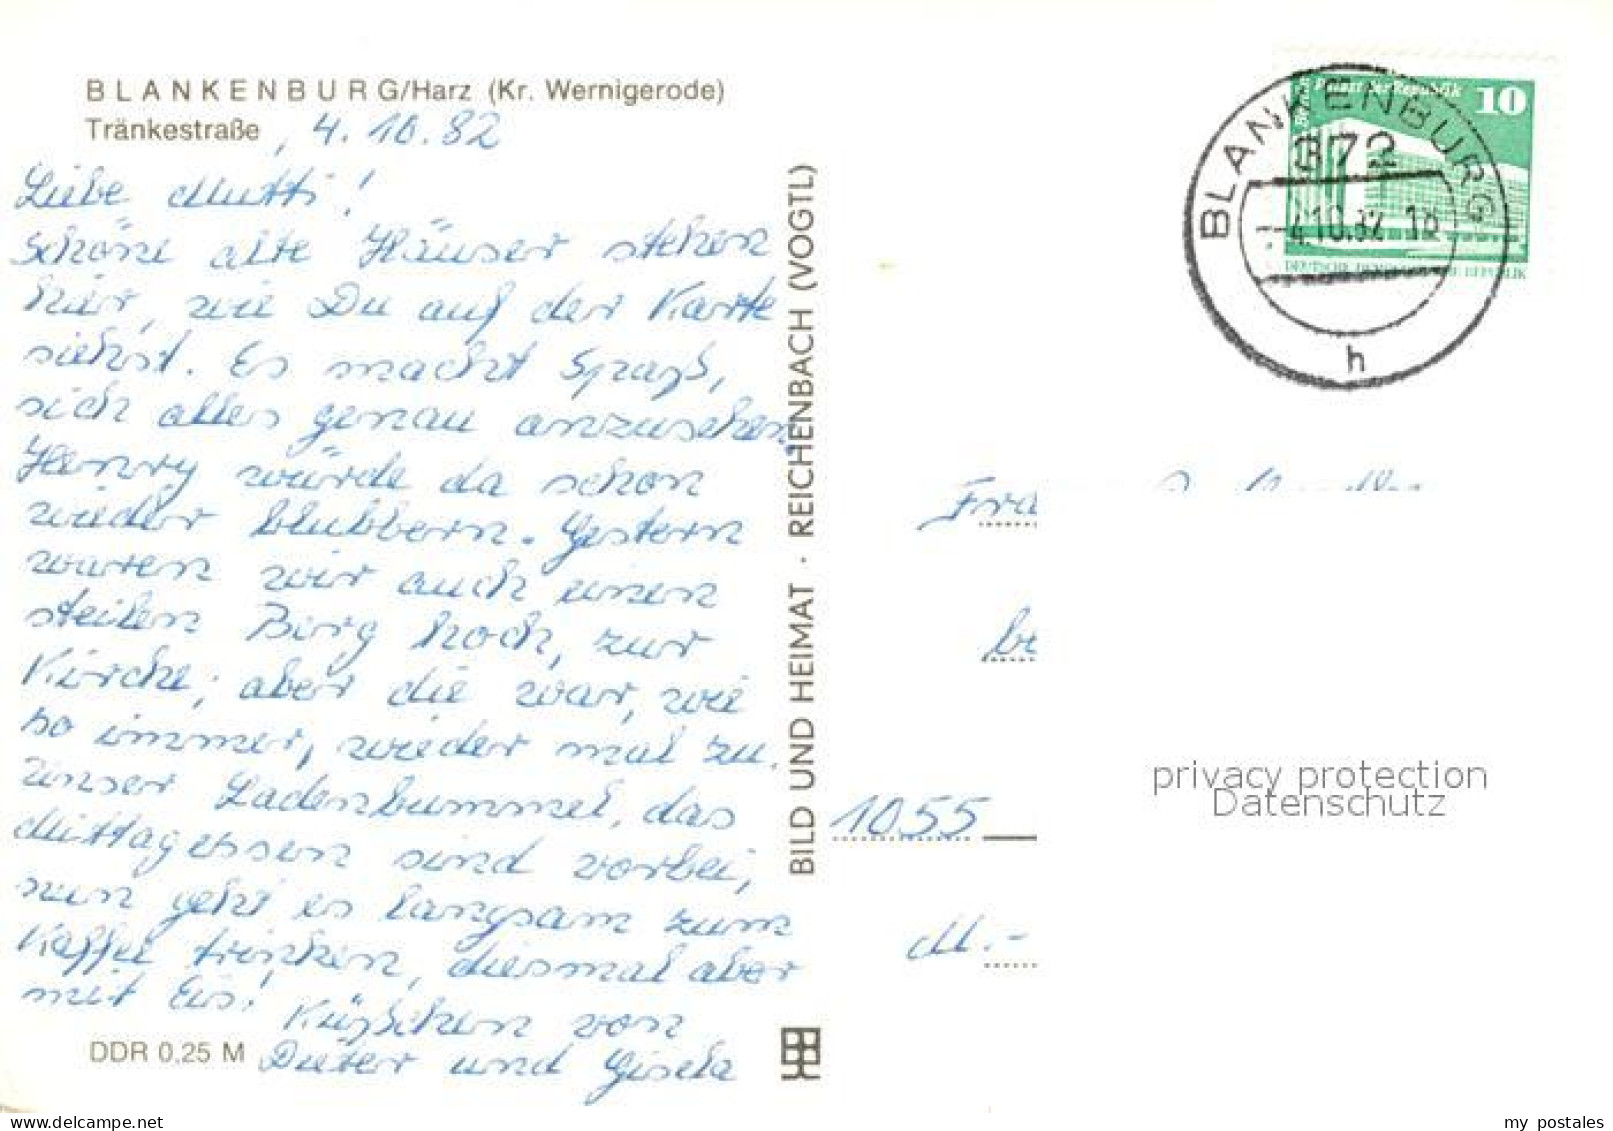 BLANKENBURG/Harz (Kr. Wernigerode)
Tränkestraße , 4.10.82
Liebe Mutti!
Schöne alte Häuser stehen
hier, wie Du auf der Karte
siehst. Es macht Spaß,
sich alles genau anzusehen,
Henry würde da schon
wieder blubbern. Gestern
waren wir auch einen
steilen Berg hoch, zur
Kirche, aber die war, wie
so immer, wieder mal zu.
Unser Ladenbummel, das
Mittagessen sind vorbei,
nun geht es langsam zum
Kaffee trinken, diesmal aber
mit Eis.
Küßchen von
Dieter und Gisela
DDR 0,25 M
BILD UND HEIMAT · REICHENBACH (VOGTL)
Berlin Palast der Republik 10
DEUTSCHE DEMOKRATISCHE REPUBLIK
BLANKENBURG
372
-4.10.82
h
1055
privacy protection
Datenschutz
delcampe.net
my_postales